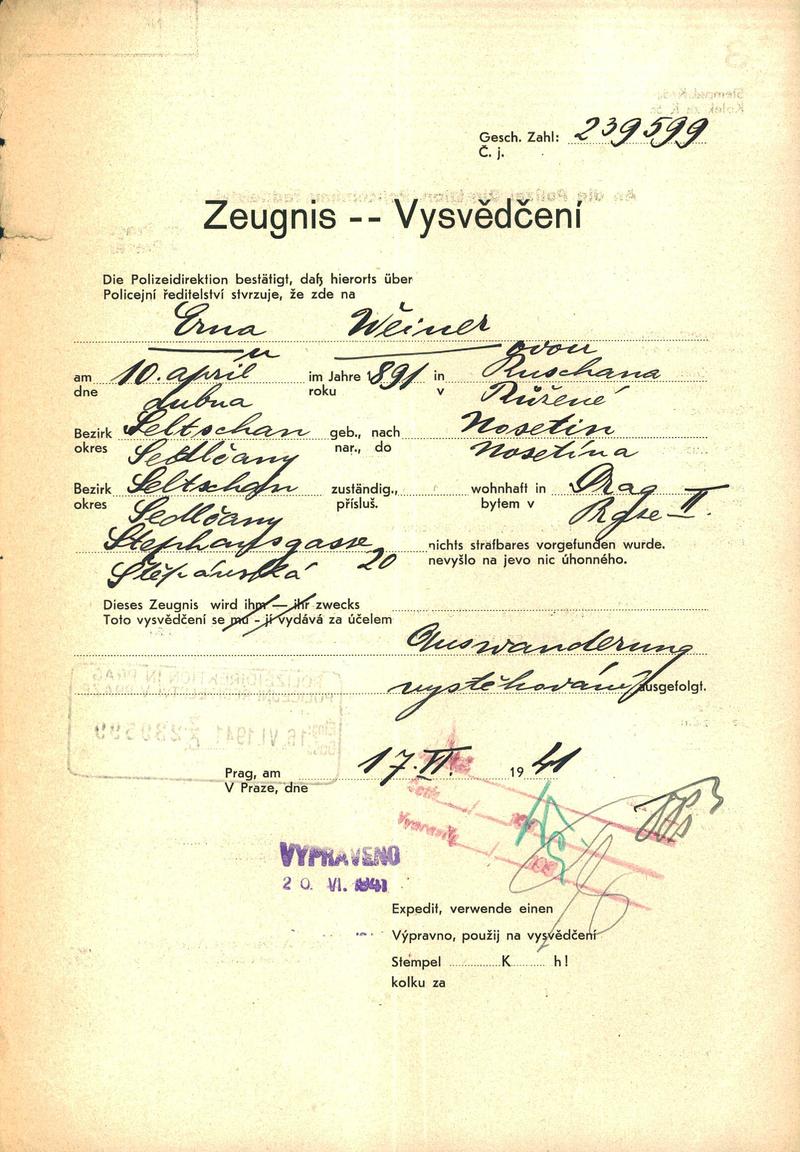 Gesch. Zahl: 239599
Č. j.
Zeugnis -- Vysvědčení
Die Polizeidirektion bestätigt, daß hierorts über
Policejní ředitelství stvrzuje, že zde na
Erna Weiner
ovou
am 10. april im Jahre 1891 in Ruschana
dne dubna roku v Růžené
Bezirk Seltschan geb., nach Nosetin
okres Sedlčany nar., do Nosetína
Bezirk Seltschan zuständig., wohnhaft in Prag II.
okres Sedlčany přísluš. bytem v Praze
Stephansgasse 20 nichts strafbares vorgefunden wurde.
Štěpánská nevyšlo na jevo nic úhonného.
Dieses Zeugnis wird ihm — ihr zwecks
Toto vysvědčení se mu - jí vydává za účelem
Auswanderung
vystěhování ausgefolgt.
Prag, am 17. VI. 1941
V Praze, dne
VYPRAVENO
20. VI. 1941
Expedit, verwende einen
Výpravno, použij na vysvědčení
Stempel K h!
kolku za